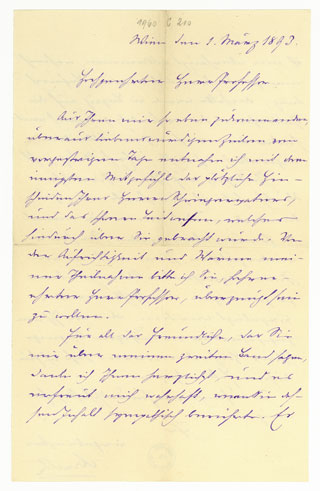 1960 C 210
Wien den 1. März 1893.
Hochgeehrter Herr Professor
Aus Ihren mir so eben zukommenden
überaus liebenswürdigen Zeilen vom
vorgestrigen Tage entnehme ich mit dem
innigsten Mitgefühl das plötzliche Hin-
scheiden Ihres Herrn Schwiegervaters,
und das schwere Leid, welches
hiedurch über Sie gebracht wurde. Von
der Aufrichtigkeit und Wärme mei-
ner Theilnahme bitte ich Sie, hochge-
ehrter Herr Professor, überzeugt sein
zu wollen.
Für all das Freundliche, das Sie
mir über meinen zweiten Band sagen,
danke ich Ihnen herzlichst, und es
erfreut mich wahrhaft, wenn Sie des-
sen Inhalt sympathisch berührte. Es